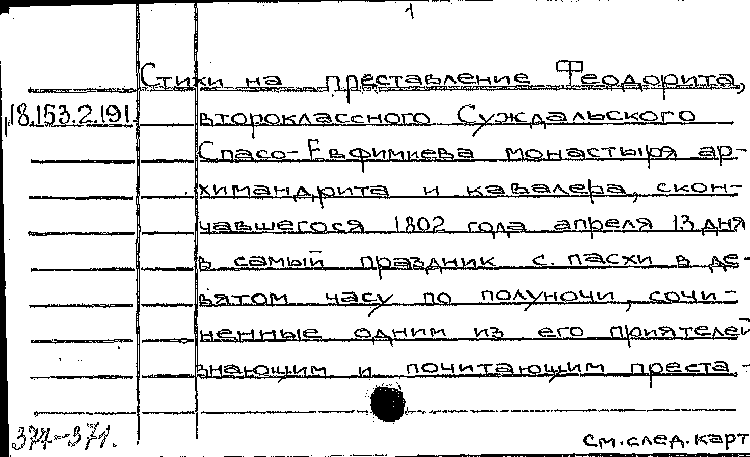 1
Стихи на преставление Феодорита,
18.153.2.191. второклассного Суждальского
Спасо-Евфимиева монастыря ар-
химандрита и кавалера, скон-
чавшегося 1802 года апреля 13 дня
в самый праздник с. пасхи в де-
вятом часу по полуночи, сочи-
ненные одним из его приятелей
знающим и почитающим преста-
374-371.
см. след. карт